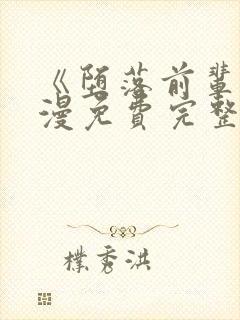 《堕落前辈
漫免費完整
樸秀洪